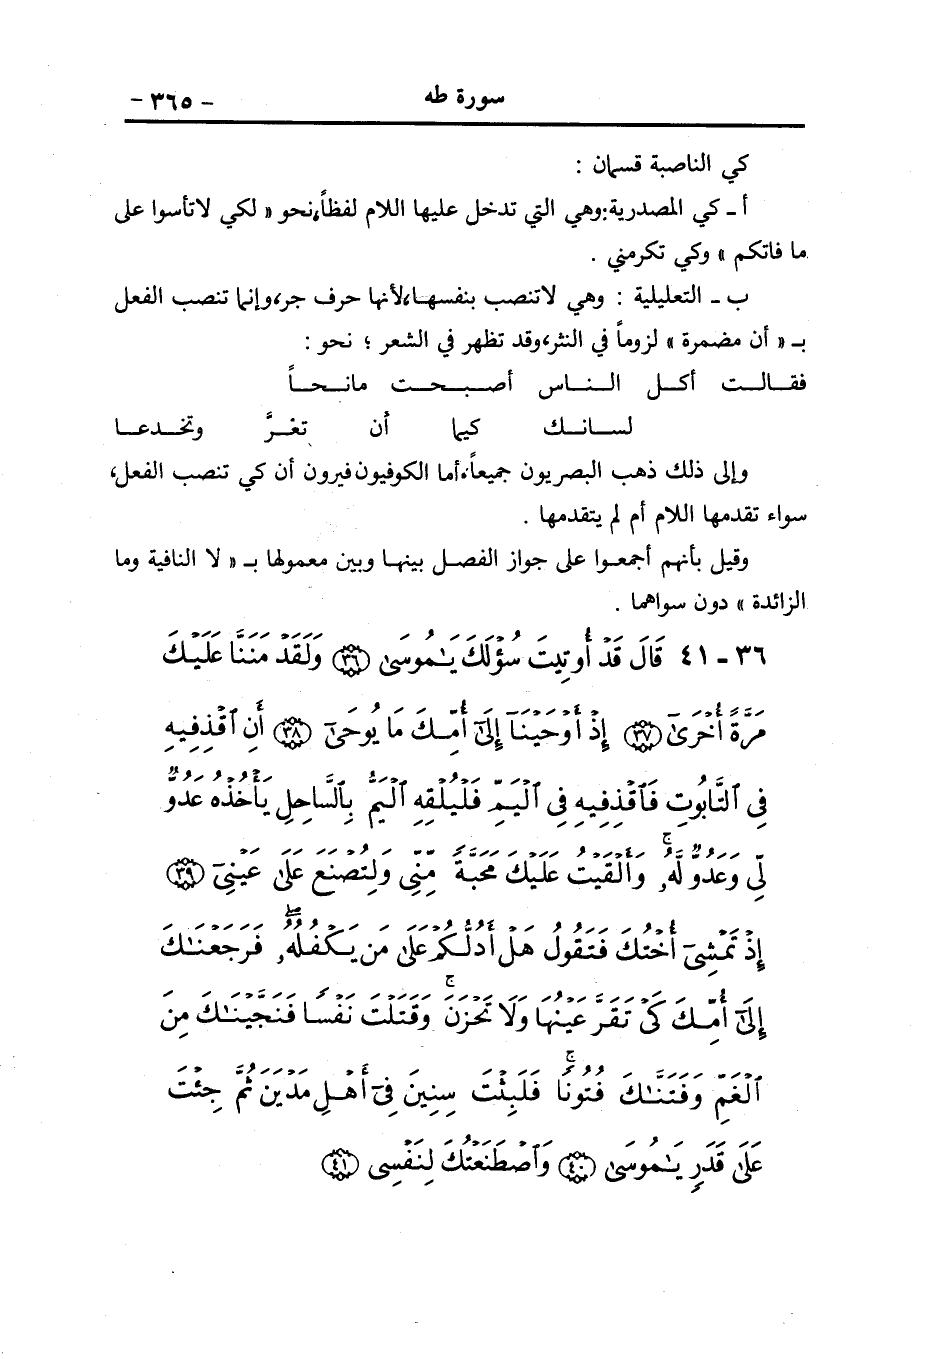 سورة طه - ٣٦٥ -
كي الناصبة قسمان :
أ ـ كي المصدرية: وهي التي تدخل عليها اللام لفظاً، نحو « لكي لا تأسوا على
ما فاتكم » وكي تكرمني .
ب ـ التعليلية : وهي لا تنصب بنفسها، لأنها حرف جر، وإنما تنصب الفعل
بـ « أن مضمرة » لزوماً في النثر، وقد تظهر في الشعر ؛ نحو :
فقالت أكل الناس أصبحت مانحاً
لسانك كيما أن تغرَّ وتخدعا
وإلى ذلك ذهب البصريون جميعاً، أما الكوفيون فيرون أن كي تنصب الفعل،
سواء تقدمها اللام أم لم يتقدمها .
وقيل بأنهم أجمعوا على جواز الفصل بينها وبين معمولها بـ « لا النافية وما
الزائدة » دون سواهما .
٣٦ - ٤١ قَالَ قَدْ أُوتِيتَ سُؤْلَكَ يَٰمُوسَىٰ ﴿٣٦﴾ وَلَقَدْ مَنَنَّا عَلَيْكَ
مَرَّةً أُخْرَىٰٓ ﴿٣٧﴾ إِذْ أَوْحَيْنَآ إِلَىٰٓ أُمِّكَ مَا يُوحَىٰٓ ﴿٣٨﴾ أَنِ ٱقْذِفِيهِ
فِى ٱلتَّابُوتِ فَٱقْذِفِيهِ فِى ٱلْيَمِّ فَلْيُلْقِهِ ٱلْيَمُّ بِٱلسَّاحِلِ يَأْخُذْهُ عَدُوٌّ
لِّى وَعَدُوٌّ لَّهُۥ ۚ وَأَلْقَيْتُ عَلَيْكَ مَحَبَّةً مِّنِّى وَلِتُصْنَعَ عَلَىٰ عَيْنِىٓ ﴿٣٩﴾
إِذْ تَمْشِىٓ أُخْتُكَ فَتَقُولُ هَلْ أَدُلُّكُمْ عَلَىٰ مَن يَكْفُلُهُۥ ۖ فَرَجَعْنَٰكَ
إِلَىٰٓ أُمِّكَ كَىْ تَقَرَّ عَيْنُهَا وَلَا تَحْزَنَ ۚ وَقَتَلْتَ نَفْسًا فَنَجَّيْنَٰكَ مِنَ
ٱلْغَمِّ وَفَتَنَّٰكَ فُتُونًا ۚ فَلَبِثْتَ سِنِينَ فِىٓ أَهْلِ مَدْيَنَ ثُمَّ جِئْتَ
عَلَىٰ قَدَرٍ يَٰمُوسَىٰ ﴿٤٠﴾ وَٱصْطَنَعْتُكَ لِنَفْسِى ﴿٤١﴾